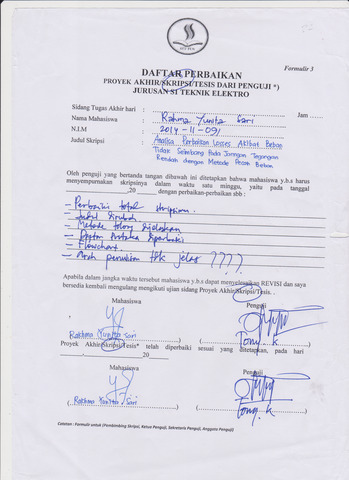 STT-PLN
Formulir 3
DAFTAR PERBAIKAN
PROYEK AKHIR/SKRIPSI/TESIS DARI PENGUJI *)
JURUSAN S1 TEKNIK ELEKTRO
Sidang Tugas Akhir hari : Jam ......
Nama Mahasiswa : Rahma Yunita Sari
N.I.M : 2014-11-091
Judul Skripsi : Analisa Perbaikan Losses Akibat Beban
Tidak Seimbang Pada Jaringan Tegangan
Rendah dengan Metode Pecah Beban
Oleh penguji yang bertanda tangan dibawah ini ditetapkan bahwa mahasiswa y.b.s harus
menyempurnakan skripsinya dalam waktu satu minggu, yaitu pada tanggal
,20 dengan perbaikan-perbaikan sbb :
- Perbaiki total skripsimu.
- Judul dirubah.
- Metode tolong dijelaskan
- Daftar Pustaka diperbaiki
- Flowchart.
- Arah penulisan tdk jelas ????
Apabila dalam jangka waktu tersebut mahasiswa y.b.s dapat menyelesaikan REVISI dan saya
bersedia kembali mengulang mengikuti ujian sidang Proyek Akhir/Skripsi/Tesis. .
Mahasiswa Penguji
Rakhma Yunita Sari Tony. K
Proyek Akhir/Skripsi/Tesis* telah diperbaiki sesuai yang ditetapkan, pada hari
,20
Mahasiswa Penguji
(Rakhma Yunita Sari) (Tony. K)
Catatan : Formulir untuk (Pembimbing Skripsi, Ketua Penguji, Sekretaris Penguji, Anggota Penguji)